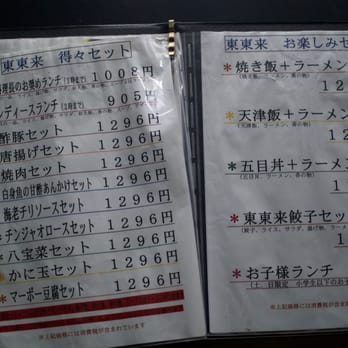 東東来 得々セット
料理長のお奨めランチ 1008円
レディースランチ(2時まで) 905円
酢豚セット 1296円
唐揚げセット 1296円
焼肉セット 1296円
白身魚の甘酢あんかけセット 1296円
海老チリソースセット 1296円
*チンジャオロースセット 1296円
*八宝菜セット 1296円
*かに玉セット 1296円
*マーボー豆腐セット 1296円
※上記価格には消費税が含まれています
東東来 お楽しみセ
*焼き飯+ラーメン
*天津飯+ラーメン
(天津飯、ラーメン、香の物)
*五目丼+ラーメン
(五目丼、ラーメン、香の物)
*東東来餃子セット
*お子様ランチ
※上記価格には消費税が